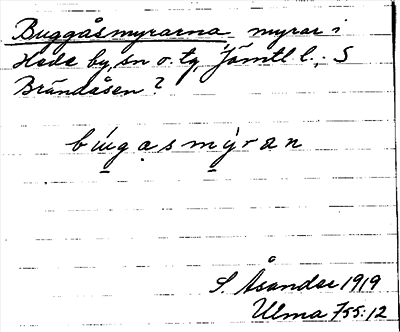 Buggåsmyrarna, myrar i
Hede by, sn o. tg, Jämtl l.; S
Brändåsen?
búgasmýran
S. Åsander 1919
Ulma 755:12